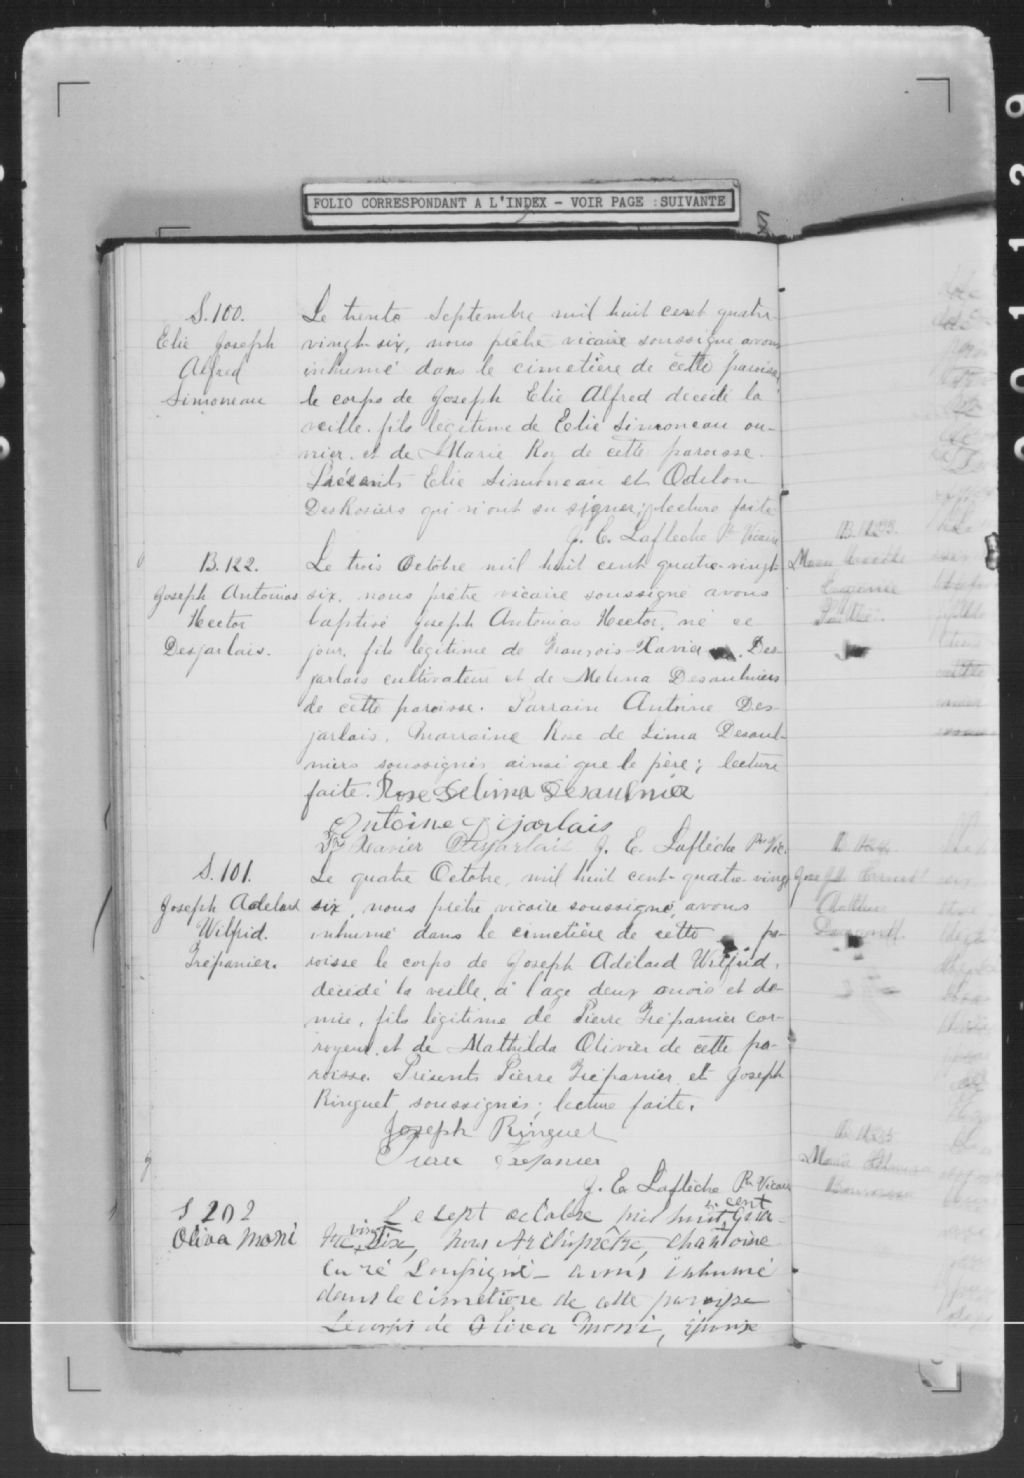 FOLIO CORRESPONDANT A L'INDEX - VOIR PAGE SUIVANTE
S. 100.
Elie Joseph
Alfred
Simoneau
Le trente Septembre mil huit cent quatre
vingt-six, nous prêtre vicaire soussigné avons
inhumé dans le cimetière de cette paroisse
le corps de Joseph Elie Alfred décédé la
veille, fils légitime de Elie Simoneau ou-
vrier, et de Marie Roy de cette paroisse.
Présents Elie Simoneau et Odilon
DesRosiers qui n'ont su signer; lecture faite
J. E. Laflèche Ptr Vicaire
B. 122.
Joseph Antonias
Hector
Desjarlais.
Le trois Octobre mil huit cent quatre-vingt
six, nous prêtre vicaire soussigné avons
baptisé Joseph Antonias Hector, né ce
jour, fils légitime de François-Xavier Des-
jarlais cultivateur et de Melina Desaulniers
de cette paroisse. Parrain Antoine Des
jarlais. Marraine Rose de Lima Desaul-
niers soussignés ainsi que le père; lecture
faite. Rose Delima Desaulnier
Antoine Dejarlais
Frs Xavier Desjarlais J. E. Laflèche Ptr Vic.
S. 101.
Joseph Adelard
Wilfrid.
Trépanier.
Le quatre Octobre, mil huit cent-quatre-vingt
six, nous prêtre vicaire soussigné, avons
inhumé dans le cimetière de cette pa-
roisse le corps de Joseph Adélard Wilfrid,
décédé la veille, à l'age deux mois et de-
mie, fils légitime de Pierre Trépanier cor-
royeur, et de Mathilda Olivier de cette pa-
roisse. Présents Pierre Trépanier et Joseph
Ringuet soussignés; lecture faite.
Joseph Ringuet
Pierre Trépanier
J. E. Laflèche Ptr Vicaire
S 202
Oliva Moni
Le sept octobre mil huit cent qua-
tre vingt Six, nous Archiprêtre, chanoine
curé soussigné - avons inhumé
dans le cimetière de cette paroisse
Le corps de Oliva Moni, épouse